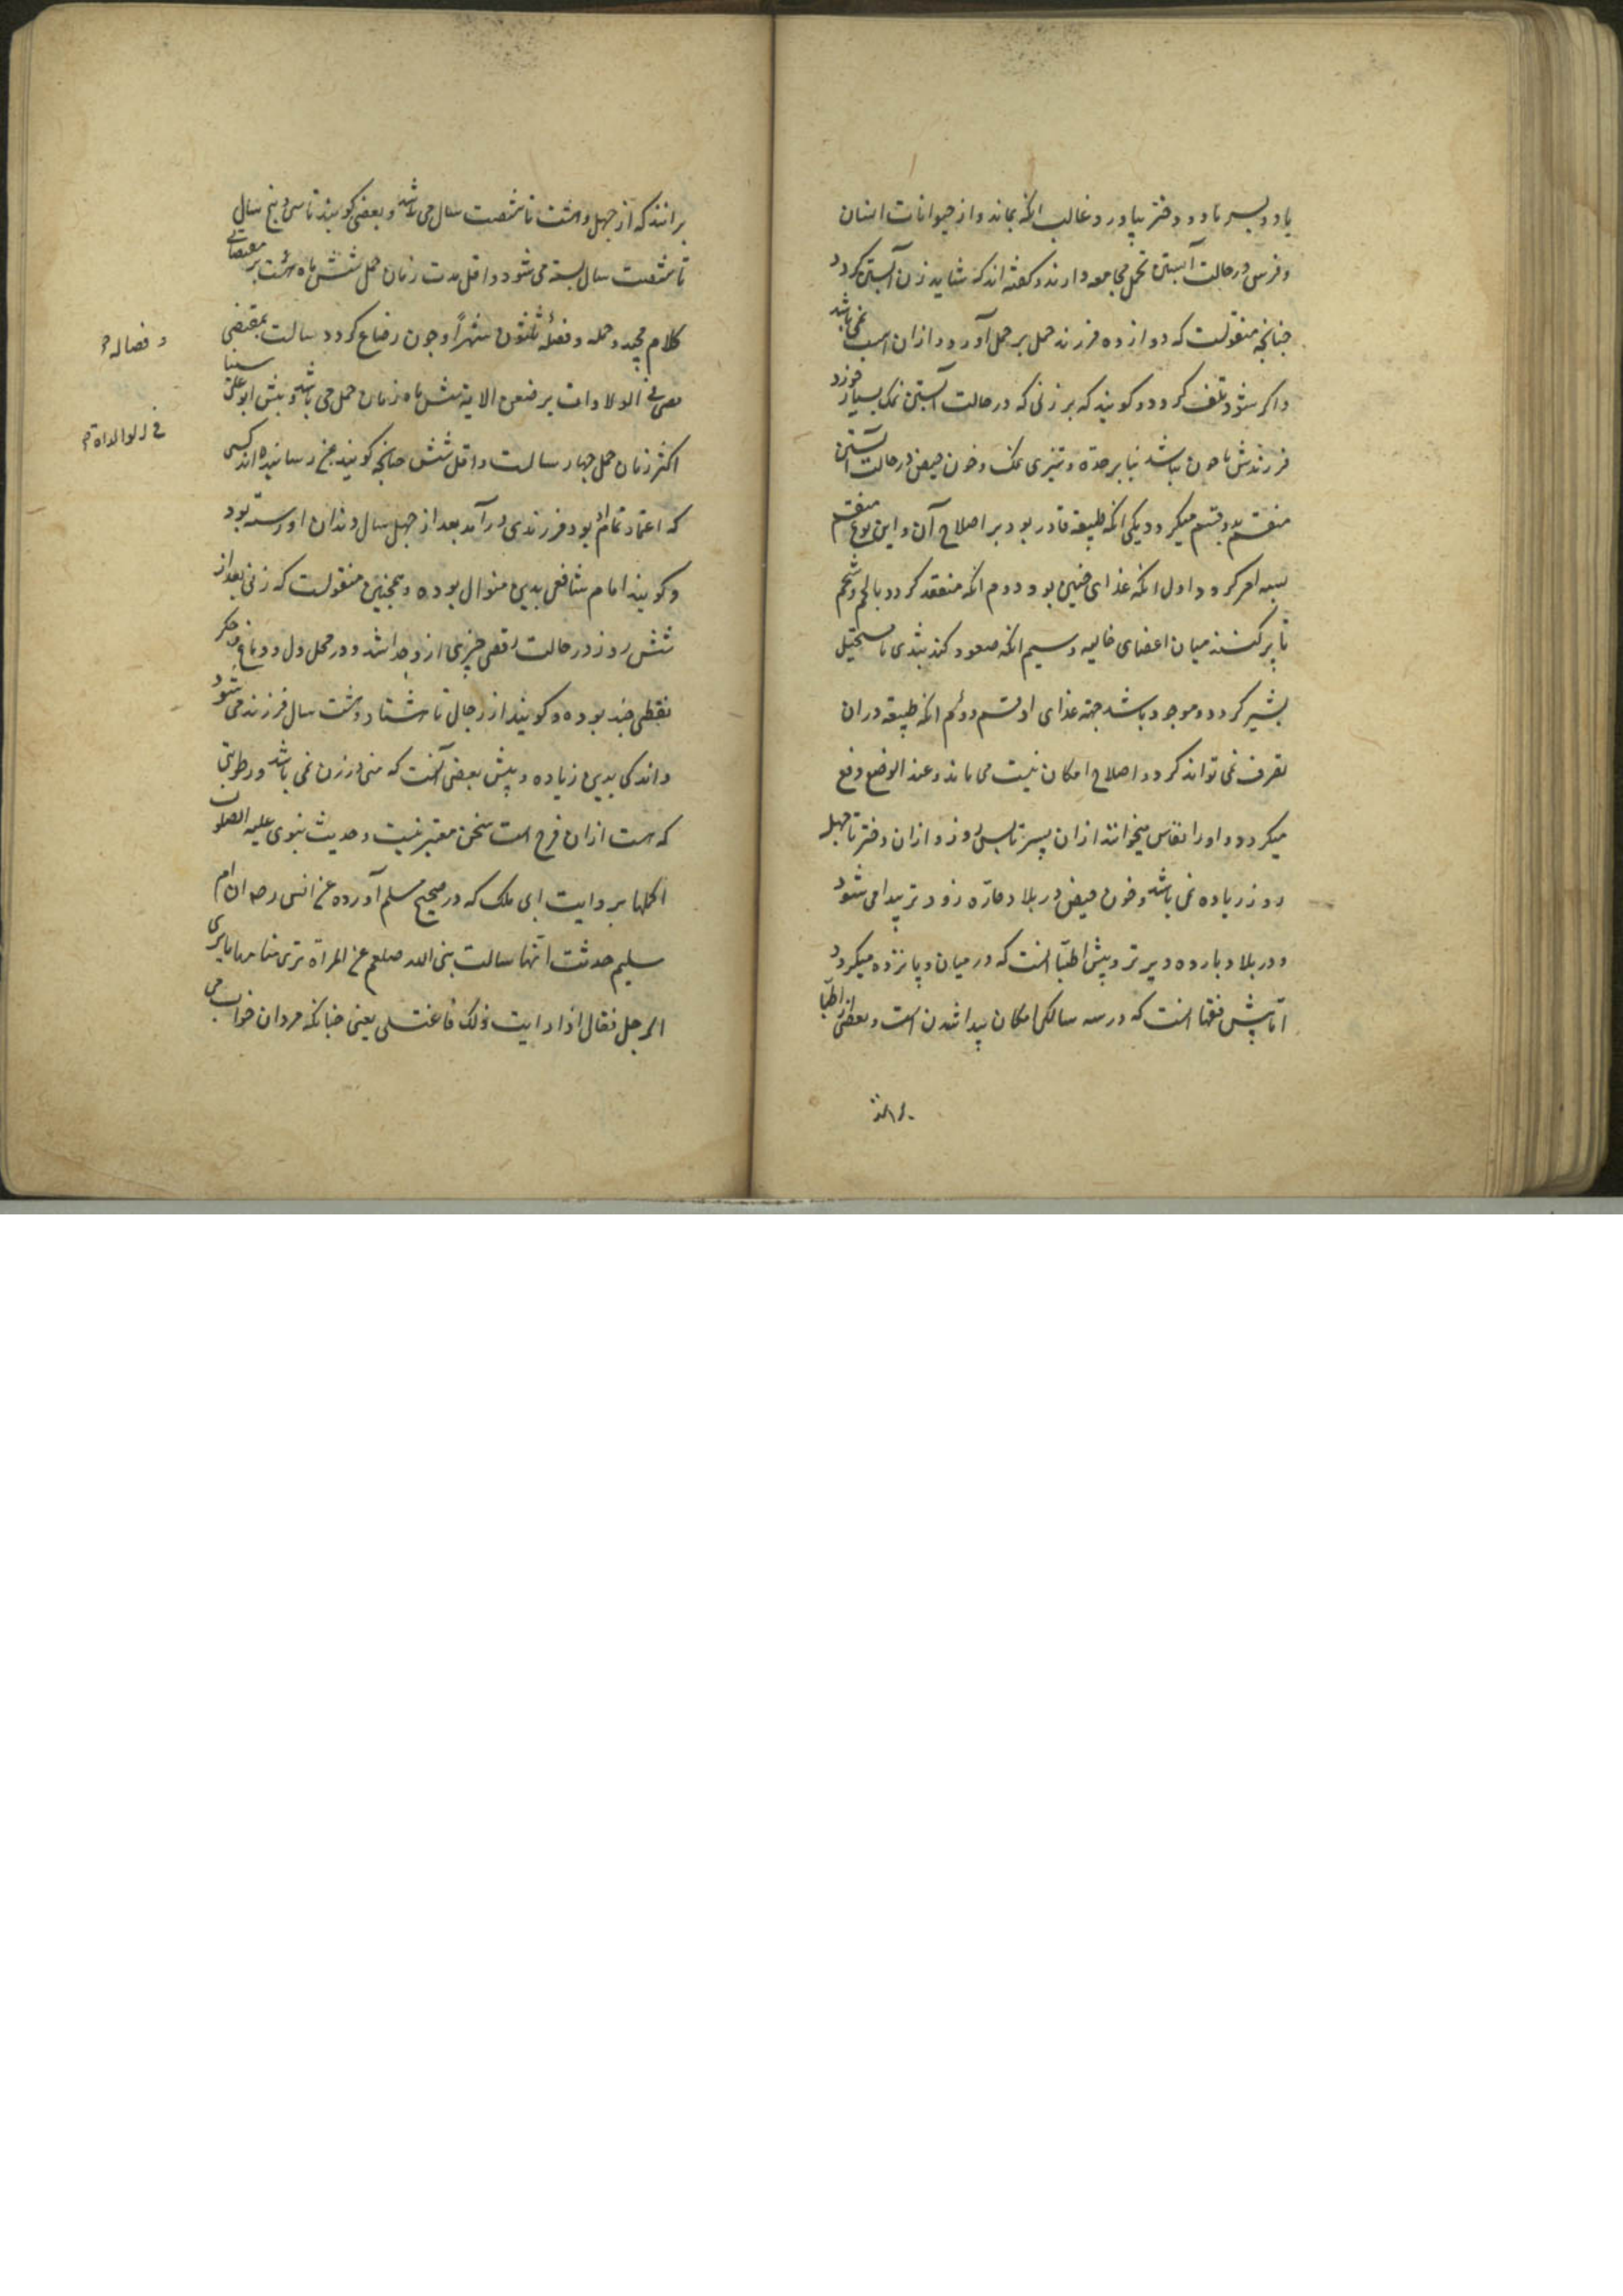 یا دو پسر یا دو دختر بیاورد و غالب انکه بماند و از حیوانات انسان
و فرس در حالت آبستنی تحمل مجامعه دارند و کفته اند که شاید زن آبستن کردد
جنانجه منقولست که دوازده فرزند حمل بر حمل آورد و از ان اسب نمی باشد
و اکر شود تلف کردد و کویند که هر زنی که در حالت آبستن نمک بسیار خورد
فرزندش ناخن نباشد بنابر حدّه و تیزی نمک و خون حیض در حالت آبستنی
منقسم بدو قسم میکردد یکی انکه طبیعة قادر بود بر اصلاح آن و این نوع منقسم
بسه امر کردد اول انکه غذای جنین بود دوم انکه منعقد کردد بالحم و شحم
تا پر کنند میان اعضای خالیه و سیم انکه صعود کند بثدی تا مستحیل
بشیر کردد و موجود باشد جهة غذای او قسم دوئم انکه طبیعة در ان
تصرف نمی تواند کرد و اصلاح امکان نیست می ماند و عند الوضع دفع
میکردد و او را نفاس میخوانند از ان پسر تا سی روز و از ان دختر تا جهل
روز زیاده نمی باشد و خون حیض در بلاد حارّه زودتر پیدا می شود
و در بلاد بارده دیرتر و پیش اطبّا انست که در میان و پانزده میکردد
امّا پیش فقها انست که در سه سالکی امکان پیدا شدن است و بعضی از اطبّا
بر انند که از جهل و هشت تا شصت سال می باشد و بعضی کویند تا سی و پنج سال
تا شصت سال بسته می شود و اقل مدت زمان حمل شش ماه است بر مقتضای
کلام مجید و حمله و فصله ثلثون شهرًا و جون رضاع کردد سالست بمقتضی
و فصاله
اکثر زمان حمل جهار سالست و اقل شش جنانجه کویند رسانیده اند کسی
که اعتماد تمام بود فرزندی در آمد بعد از جهل سال دندان او رسته بود
و کویند امام شافعی بدین منوال بوده و همجنین منقولست که زنی بعد از
شش روز در حالت رقص جیزی از و جدا شد و در محل دل و دماغ و جکر
نقطی جند بوده و کویند از رجال تا هشتاد و هشت سال فرزند می شود
و اندکی بدین زیاده و پیش بعضی آنست که منی در زن نمی باشد و رطوبتی
که هست از ان فرج است سخن معتبر نیست و حدیث نبوی علیه الصلوات
اکملها بروایت ابی ملک که در صحیح مسلم آورده عن انس رضه ان ام
سلیم حدثت انّها سالت نبی الله صلعم عن المرأة تری منامها ما یری
الرجل فقال اذا رایت ذلک فاغتسلی یعنی جنانکه مردان خواب می